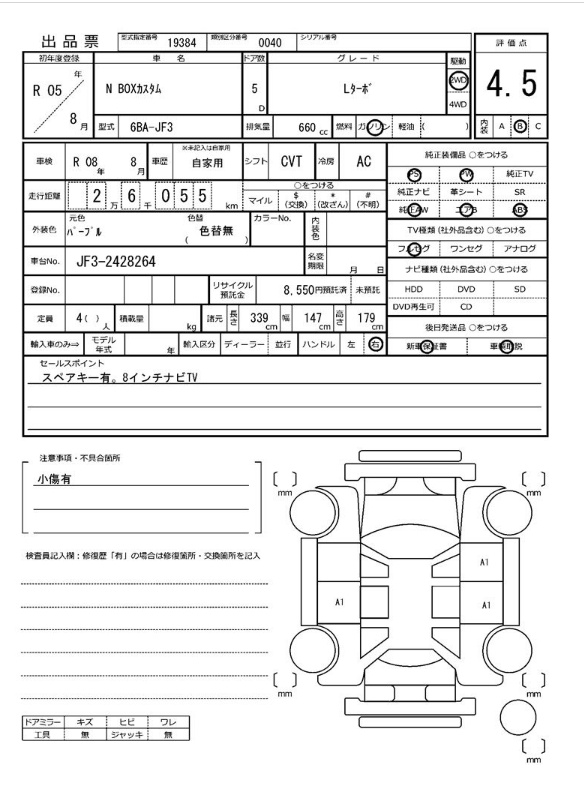 出品票 型式指定番号 19384 類別区分番号 0040 シリアル番号
初年度登録 車名 ドア数 グレード 駆動 評価点
R 05 年 8 月 N BOXカスタム 5 D Lターボ 2WD 4WD 4.5
型式 6BA-JF3 排気量 660 cc 燃料 ガソリン 軽油 ( ) 内装 A B C
車検 R 08 年 8 月 車歴 ※未記入は自家用 自家用 シフト CVT 冷房 AC 純正装備品 ○をつける
PS PW 純正TV
走行距離 2 万 6 千 0 5 5 km ○をつける マイル $ (交換) * (改ざん) # (不明) 純正ナビ 革シート SR
純正AW エアB ABS
外装色 元色 パープル 色替 ( 色替無 ) カラーNo. 内装色 TV種類 (社外品含む) ○をつける
フルセグ ワンセグ アナログ
車台No. JF3-2428264 名変期限 月 日 ナビ種類 (社外品含む) ○をつける
登録No. リサイクル預託金 8,550円預託済 未預託 HDD DVD SD
DVD再生可 CD
定員 4( ) 人 積載量 kg 諸元 長さ 339 cm 幅 147 cm 高さ 179 cm 後日発送品 ○をつける
輸入車のみ⇒ モデル年式 年 輸入区分 ディーラー 並行 ハンドル 左 右 新車保証書 車載取説
セールスポイント
スペアキー有。8インチナビTV
注意事項・不具合箇所
小傷有
検査員記入欄：修復歴「有」の場合は修復箇所・交換箇所を記入
mm mm
A1
A1 A1
mm mm
mm
ドアミラー キズ ヒビ ワレ
工具 無 ジャッキ 無